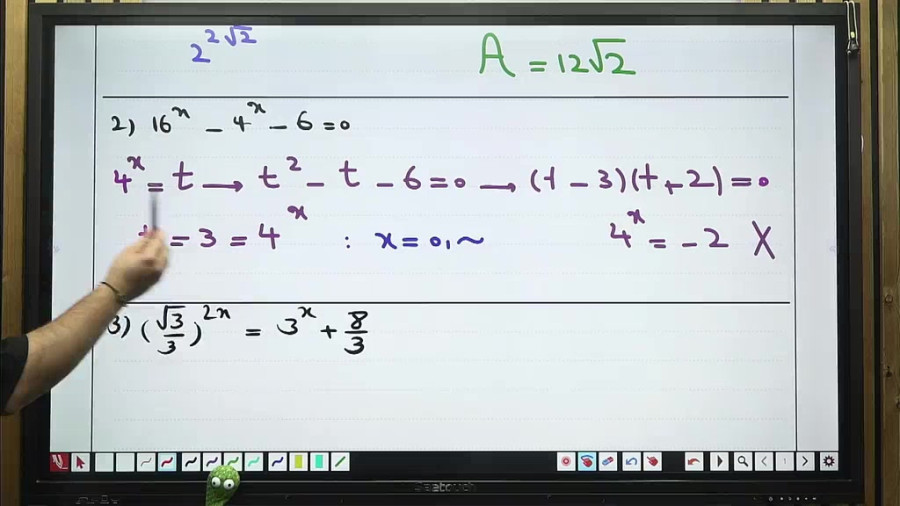 2^{2\sqrt{2}}
A = 12√2
2) 16^x - 4^x - 6 = 0
4^x = t → t^2 - t - 6 = 0 → (t - 3)(t + 2) = 0
t = 3 = 4^x : x = 0,~ 4^x = -2 X
3) (√3/3)^{2x} = 3^x + 8/3